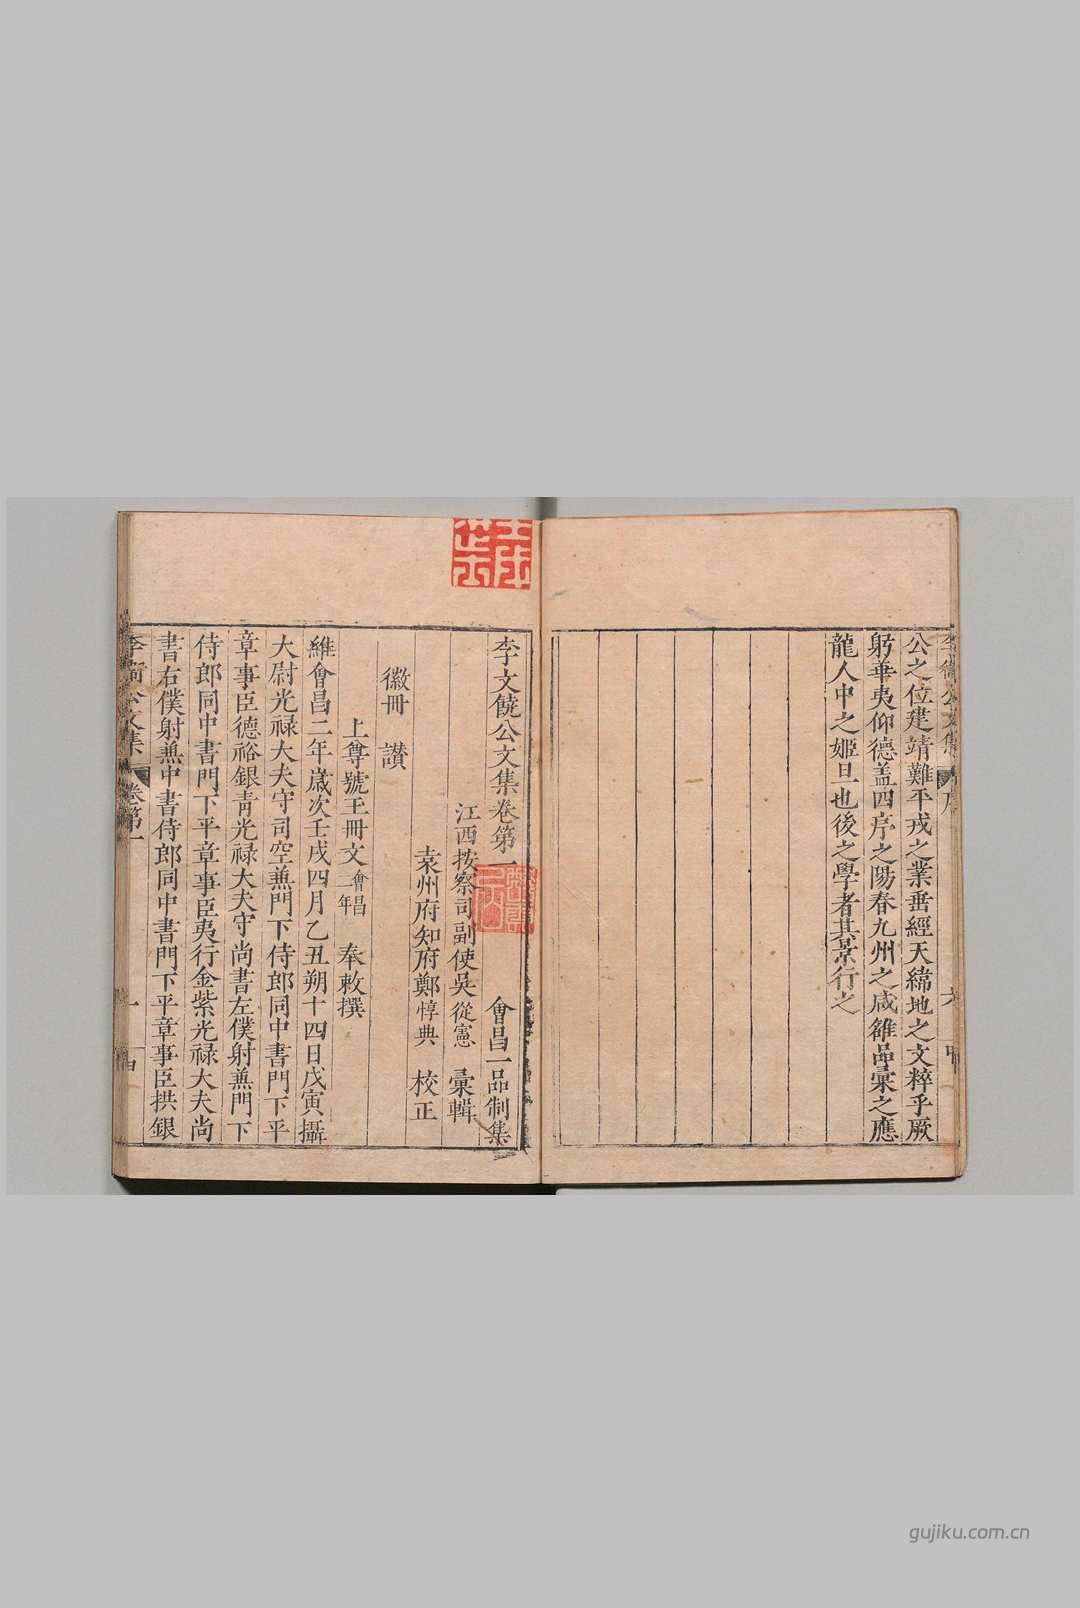 公之位建靖難平戎之業垂經天緯地之文粹乎厥
躬華夷仰德盖四序之陽春九州之咸雒品彚之應
龍人中之姬旦也後之學者其景行之
李文饒公文集卷第一 會昌一品制集
江西按察司副使吳從憲 彙輯
袁州府知府鄭惇典 校正
徽冊 讃
上尊號玉冊文會昌二年 奉敕撰
維會昌二年歲次壬戌四月乙丑朔十四日戊寅攝
大尉光禄大夫守司空兼門下侍郎同中書門下平
章事臣德裕銀青光禄大夫守尚書左僕射兼門下
侍郎同中書門下平章事臣夷行金紫光禄大夫尚
書右僕射兼中書侍郎同中書門下平章事臣拱銀
李衛公文集 卷第一 一
gujiku.com.cn